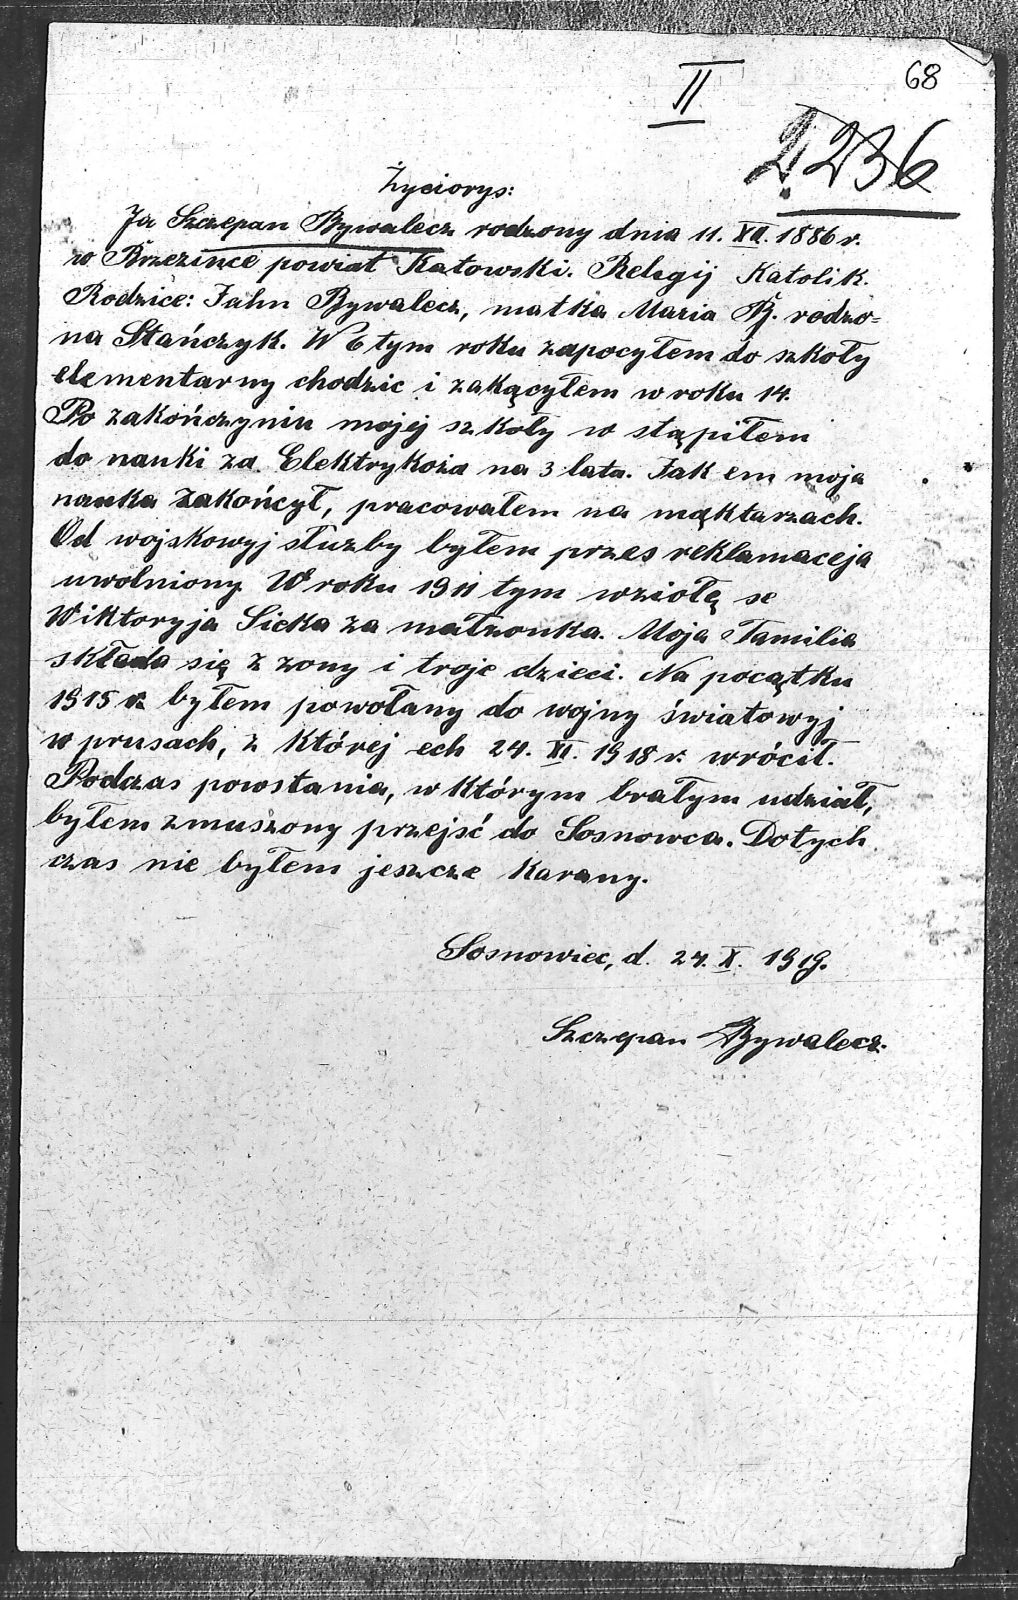 68
II
2236
Życiorys:
Ja Szczepan Bywalecz rodzony dnia 11. XII. 1886 r.
w Brzezince powiat Katowski. Religij Katolik.
Rodzice: Jahn Bywalecz, matka Maria B. rodzo=
na Stańczyk. W 6 tym roku zapocytem do szkoły
elementarny chodzic i zakącyłem w roku 14.
Po zakończyniu mojej szkoły w stąpiłem
do nauki za Elektrykoża na 3 lata. Jak em moja
nauka zakończył, pracowałem na mąktarzach.
Od wojskowyj służby byłem przes reklamaceja
uwolniony. W roku 1911 tym wziołę se
Wiktoryja Sicka za małzonka. Moja Familia
składa się z zony i troje dzieci. Na początku
1915 r. byłem powołany do wojny światowyj
w prusach, z której ech 24. XI. 1918 r. wrócił.
Podczas powstania, w którym brałym udział,
byłem zmuszony przejść do Sosnowca. Dotych
czas nie byłem jeszcze karany.
Sosnowiec, d. 24. X. 1919.
Szczepan Bywalecz.